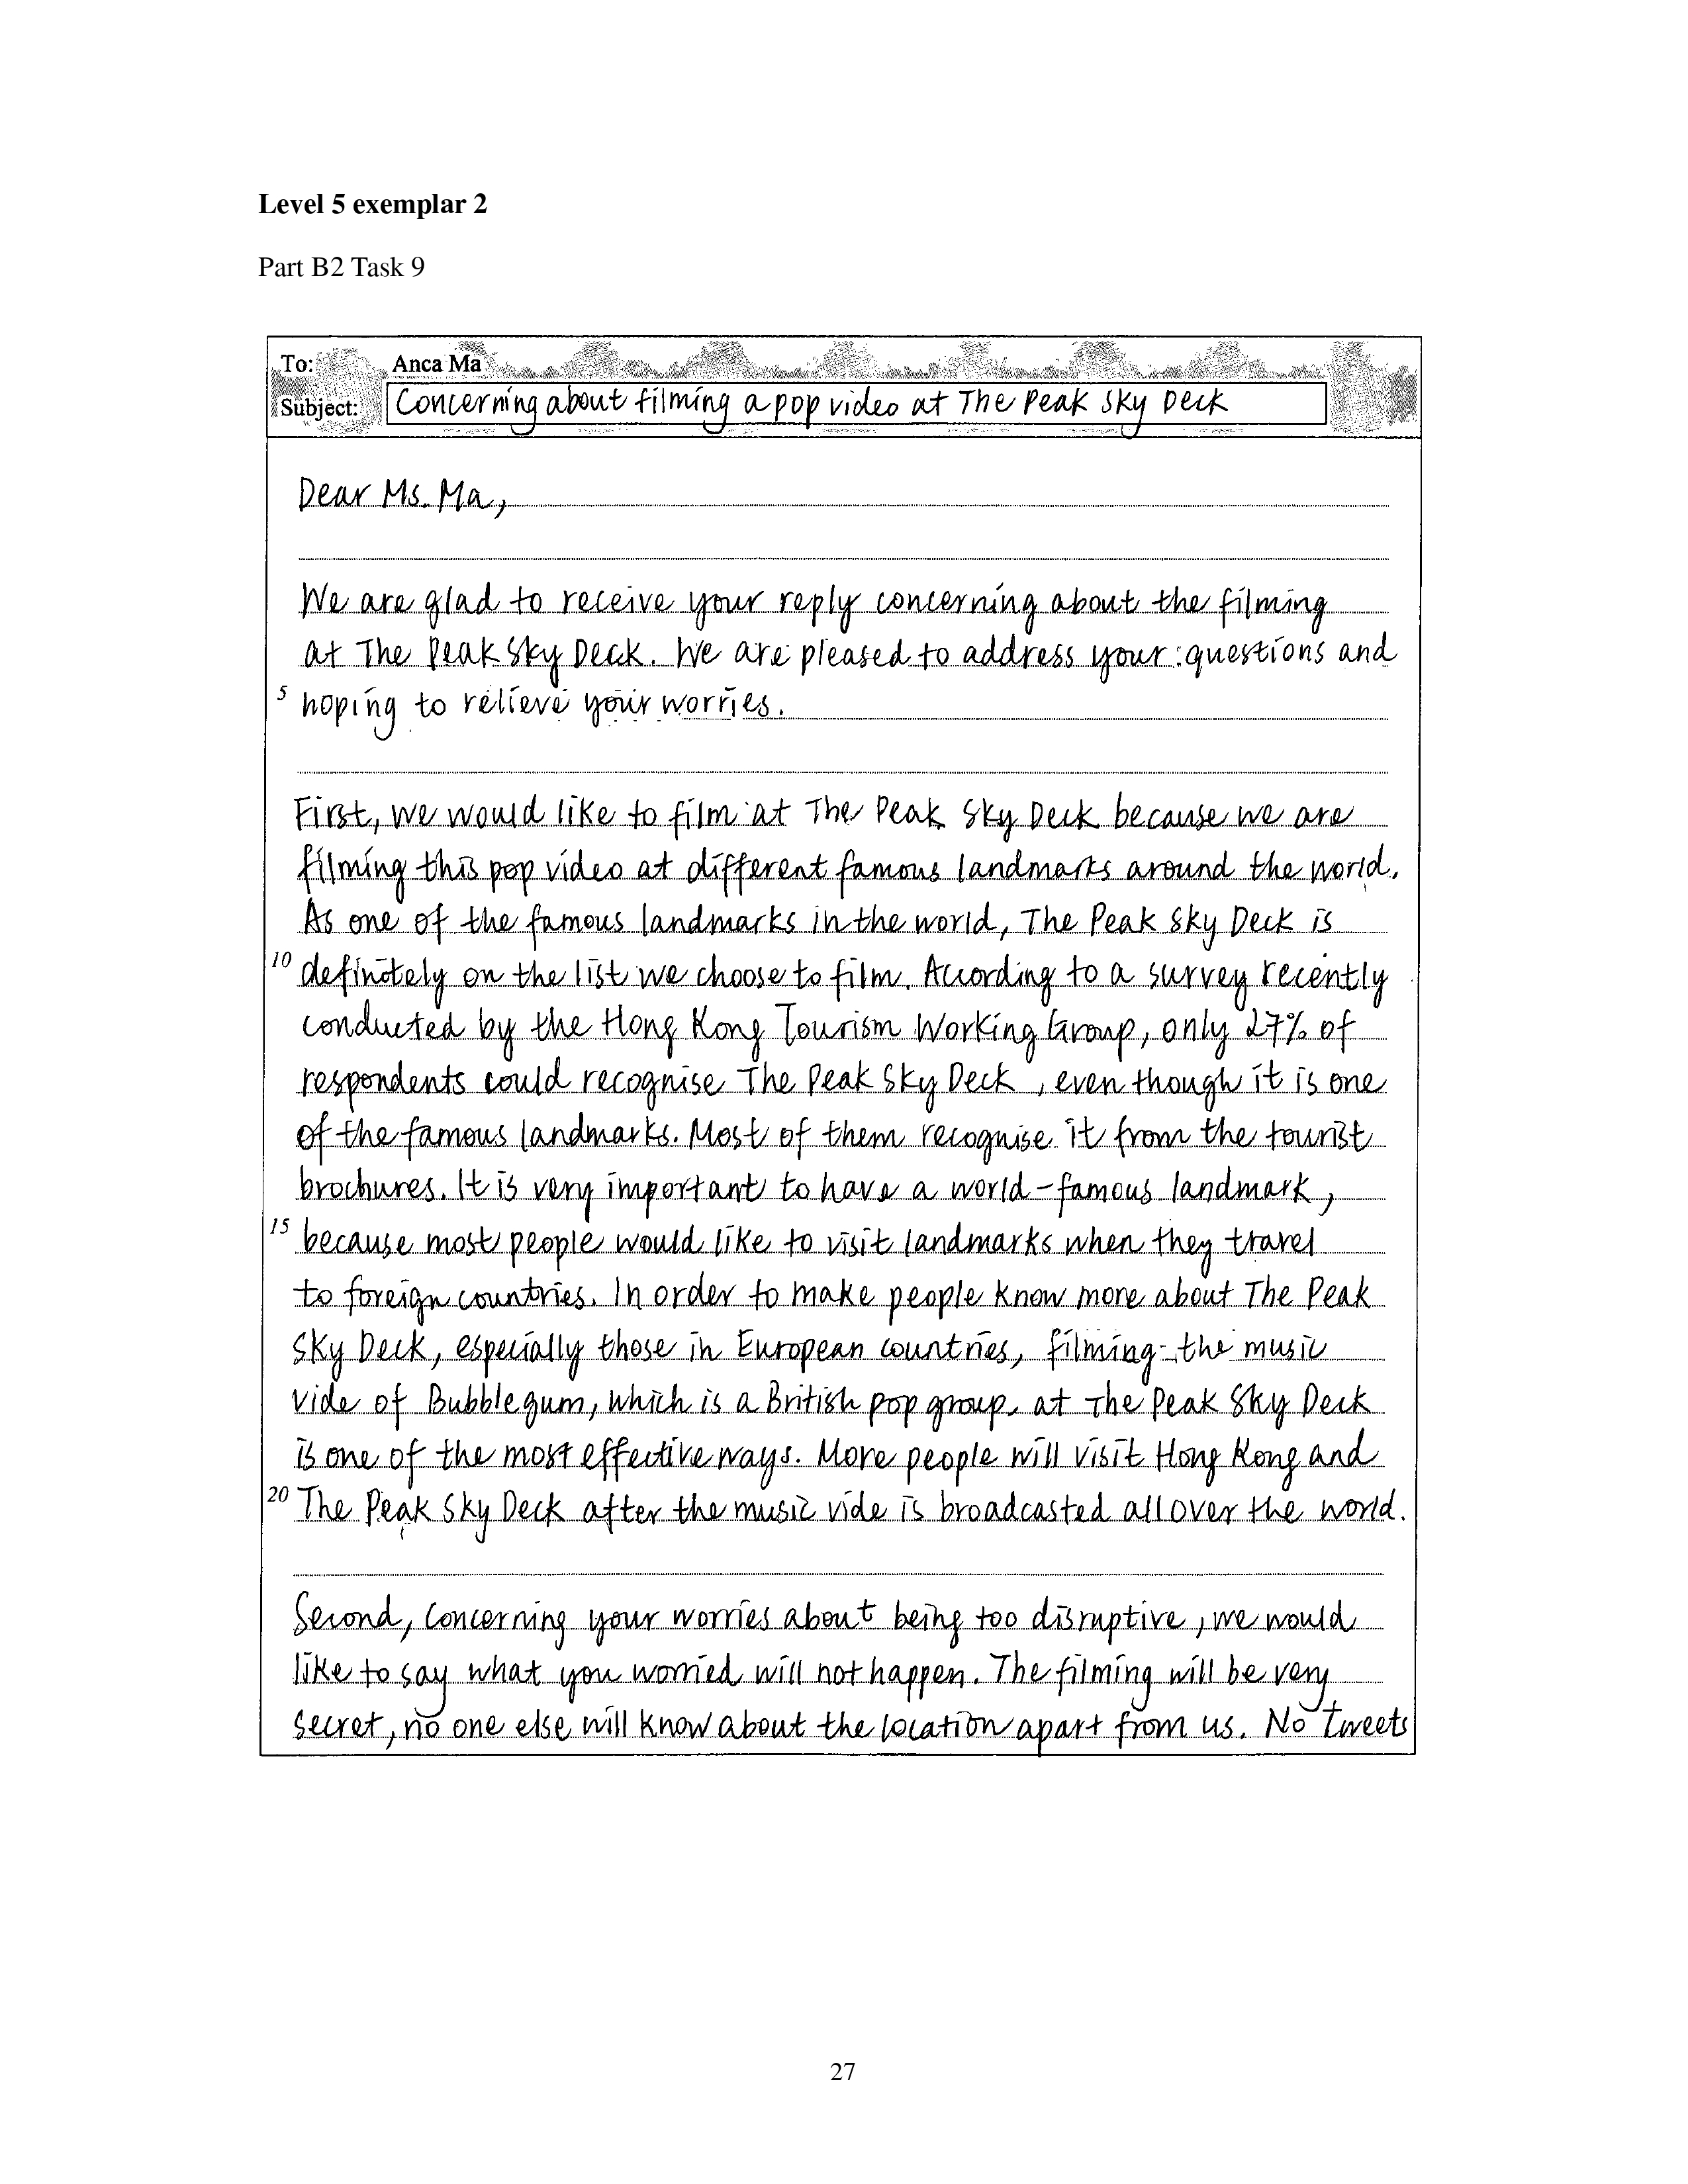 Level 5 exemplar 2
Part B2 Task 9
To: Anca Ma
Subject: Concerning about filming a pop video at The Peak Sky Deck
Dear Ms. Ma,
We are glad to receive your reply concerning about the filming
at The Peak Sky Deck. We are pleased to address your questions and
5 hoping to relieve your worries.
First, we would like to film at The Peak Sky Deck because we are
filming this pop video at different famous landmarks around the world.
As one of the famous landmarks in the world, The Peak Sky Deck is
10 definitely on the list we choose to film. According to a survey recently
conducted by the Hong Kong Tourism Working Group, only 27% of
respondents could recognise The Peak Sky Deck, even though it is one
of the famous landmarks. Most of them recognise it from the tourist
brochures. It is very important to have a world-famous landmark,
15 because most people would like to visit landmarks when they travel
to foreign countries. In order to make people know more about The Peak
Sky Deck, especially those in European countries, filming the music
vide of Bubblegum, which is a British pop group, at The Peak Sky Deck
is one of the most effective ways. More people will visit Hong Kong and
20 The Peak Sky Deck after the music vide is broadcasted all over the world.
Second, concerning your worries about being too disruptive, we would
like to say what you worried will not happen. The filming will be very
secret, no one else will know about the location apart from us. No tweets
27